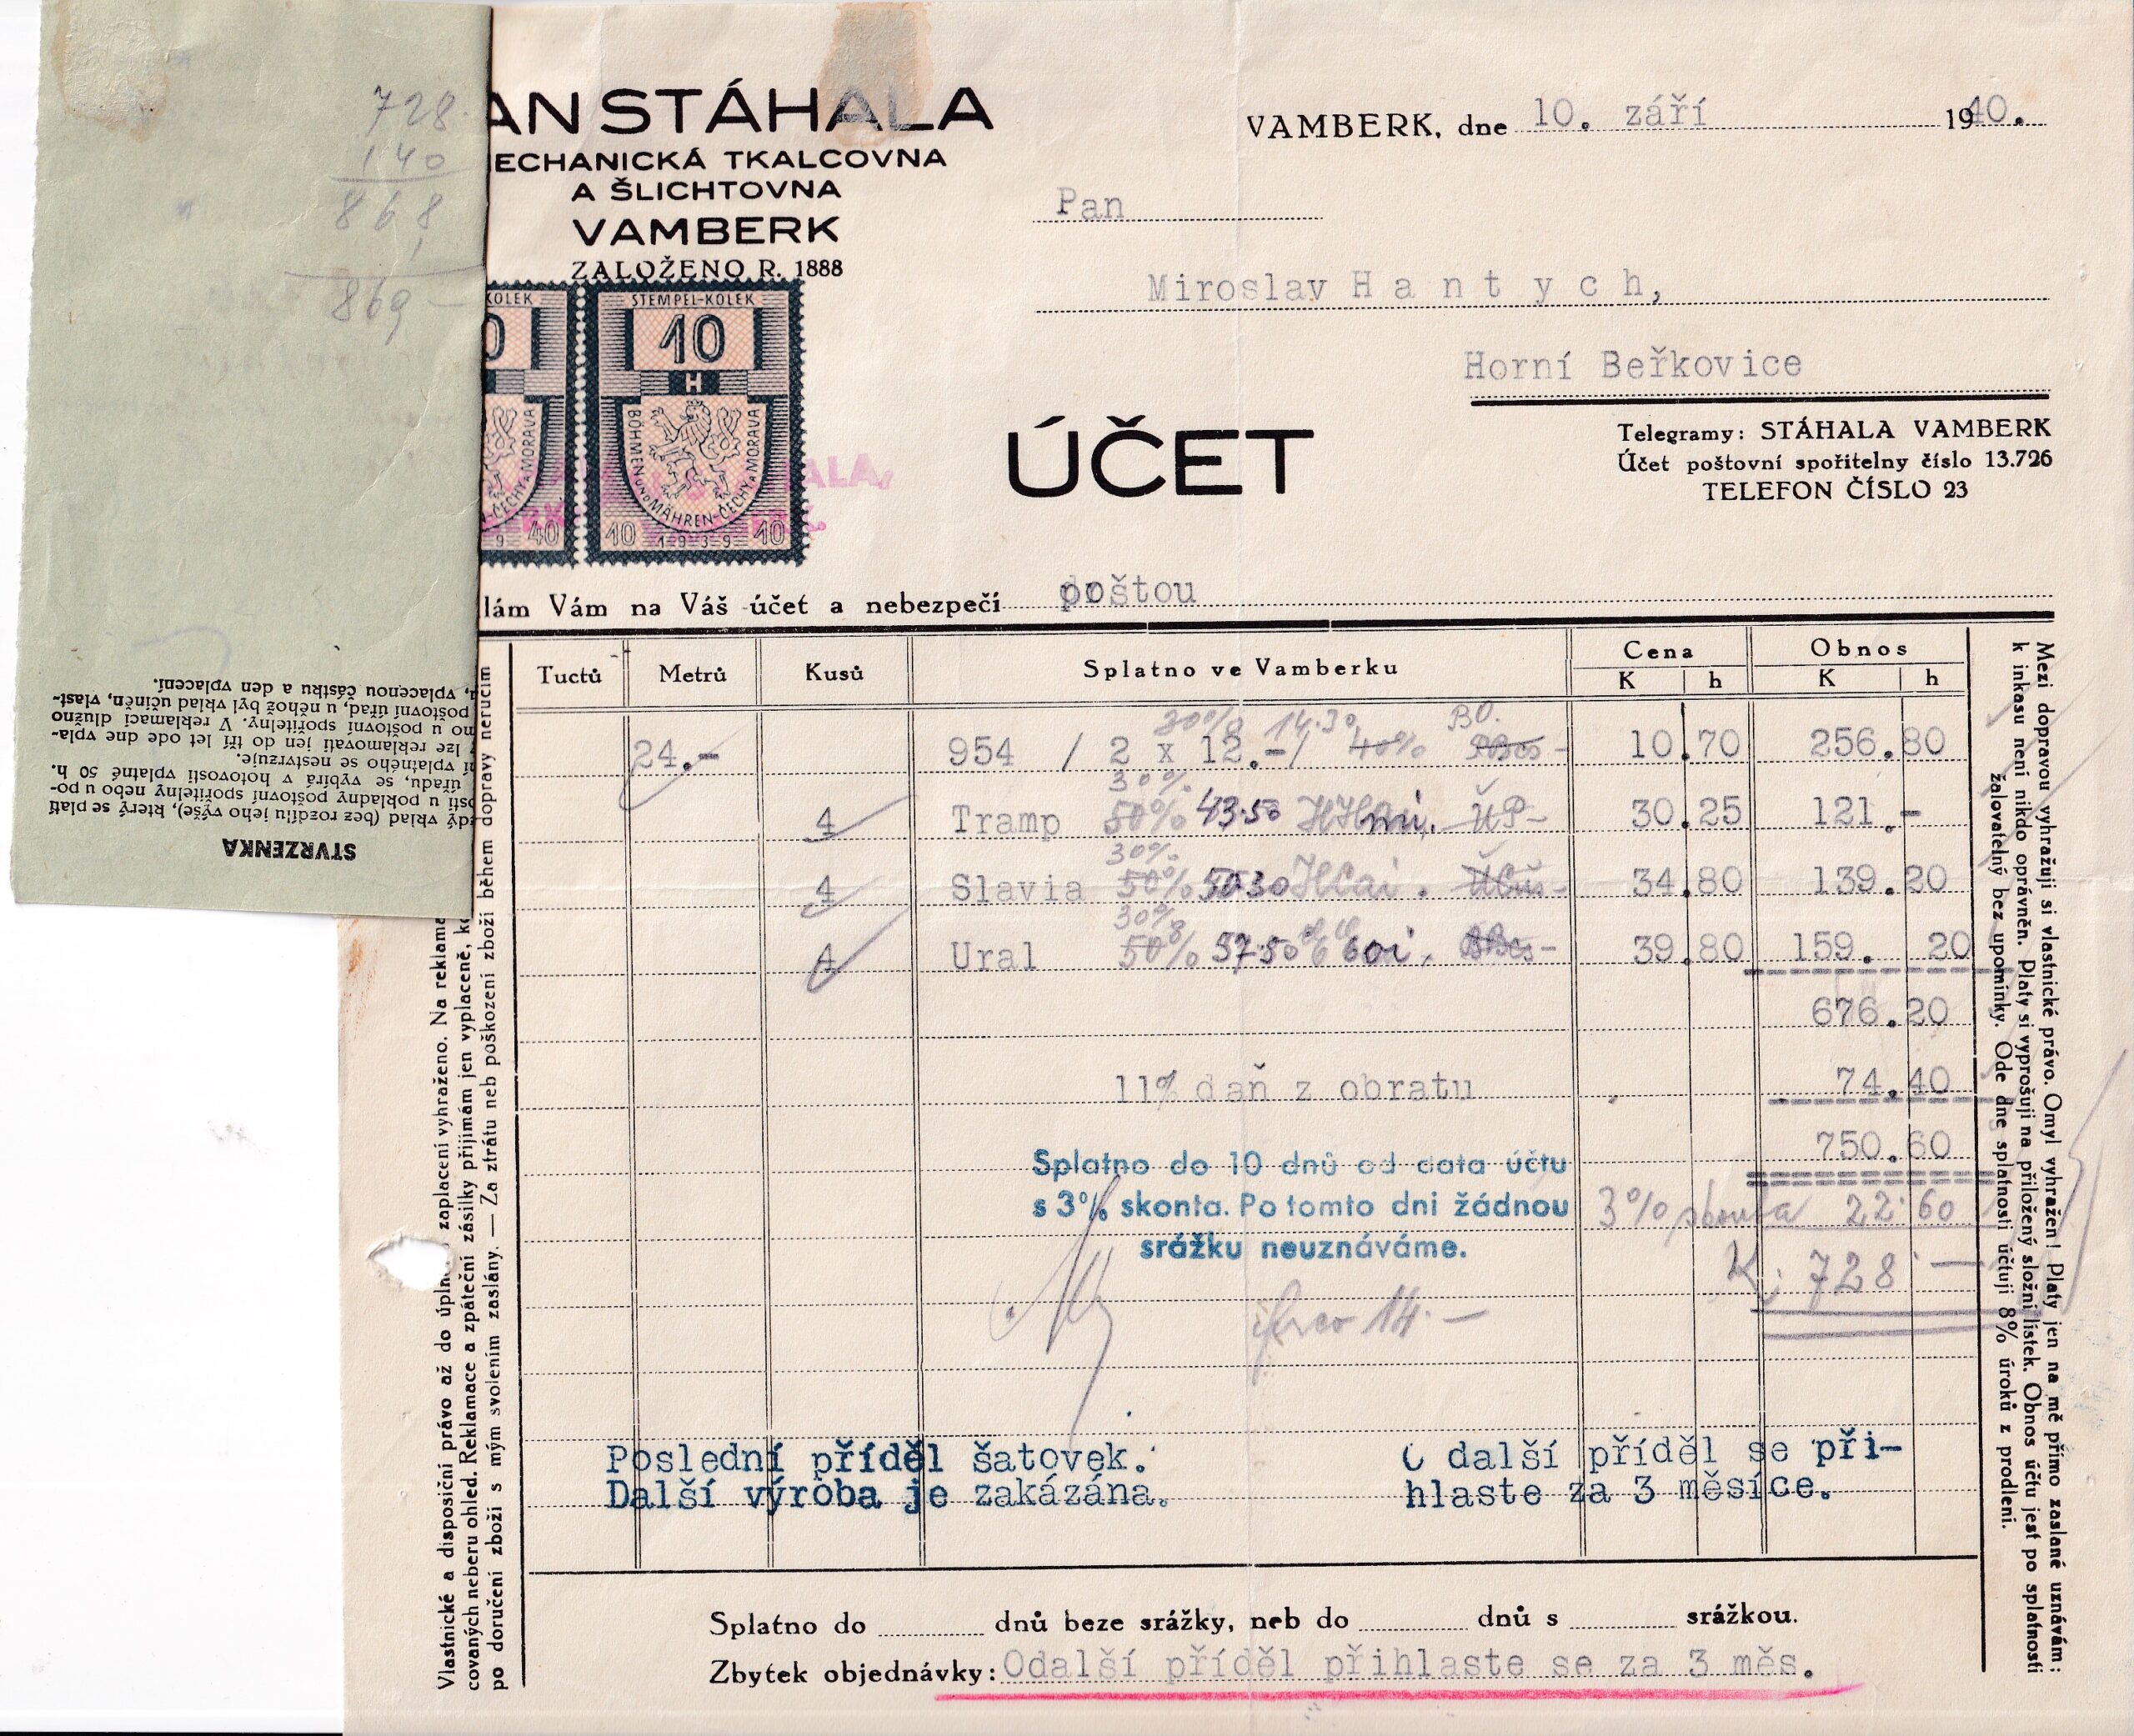 728
140
868
1
869 —
AN STÁHALA
ECHANICKÁ TKALCOVNA
A ŠLICHTOVNA
VAMBERK
ZALOŽENO R. 1888
VAMBERK, dne 10. září 1940.
Pan
Miroslav Hantych,
Horní Beřkovice
Telegramy: STÁHALA VAMBERK
Účet poštovní spořitelny číslo 13.726
TELEFON ČÍSLO 23
KOLEK
0
40
STEMPEL-KOLEK
10
H
BÖHMEN UND MÄHREN-ČECHY A MORAVA
10 1939 10
ALA,
ÚČET
lám Vám na Váš účet a nebezpečí poštou
Tuctů Metrů Kusů Splatno ve Vamberku Cena Obnos
K h K h
30% 14.30 BO.
24.- 954 / 2 x 12.-/ 40% 10.70 256.80
30%
4 Tramp 50% 43.50 30.25 121.-
30%
4 Slavia 50% 50.30 34.80 139.20
30%
4 Ural 50% 57.50 39.80 159. 20
676.20
11% daň z obratu 74.40
750.60
Splatno do 10 dnů od data účtu
s 3% skonta. Po tomto dni žádnou
srážku neuznáváme.
3% skonta 22.60
K. 728.—
14.—
Poslední příděl šatovek.
Další výroba je zakázána.
O další příděl se při-
hlaste za 3 měsíce.
Splatno do dnů beze srážky, neb do dnů s srážkou.
Zbytek objednávky: Odalší příděl přihlaste se za 3 měs.
STVRZENKA
dý vklad (bez rozdílu jeho výše), který se platí
osti u pokladny poštovní spořitelny nebo u po-
úřadu, se vybírá v hotovosti vplatné 50 h.
ní vplatného se nestvrzuje.
lze reklamovati jen do tří let ode dne vpla-
no u poštovní spořitelny. V reklamaci dlužno
poštovní úřad, u něhož byl vklad učiněn, vlast-
u, vplacenou částku a den vplacení.
Vlastnické a disposiční právo až do úpln zaplacení vyhraženo. Na reklama
covaných neberu ohled. Reklamace a zpáteční zásilky přijímám jen vyplaceně, k
po doručení zboží s mým svolením zaslány. — Za ztrátu neb poškození zboží během dopravy neručím
Mezi dopravou vyhražuji si vlastnické právo. Omyl vyhražen! Platy jen na mě přímo zaslané uznávám;
k inkasu není nikdo oprávněn. Platy si vyprošuji na přiložený složní lístek. Obnos účtu jest po splatnosti
žalovatelný bez upomínky. Ode dne splatnosti účtuji 8% úroků z prodlení.